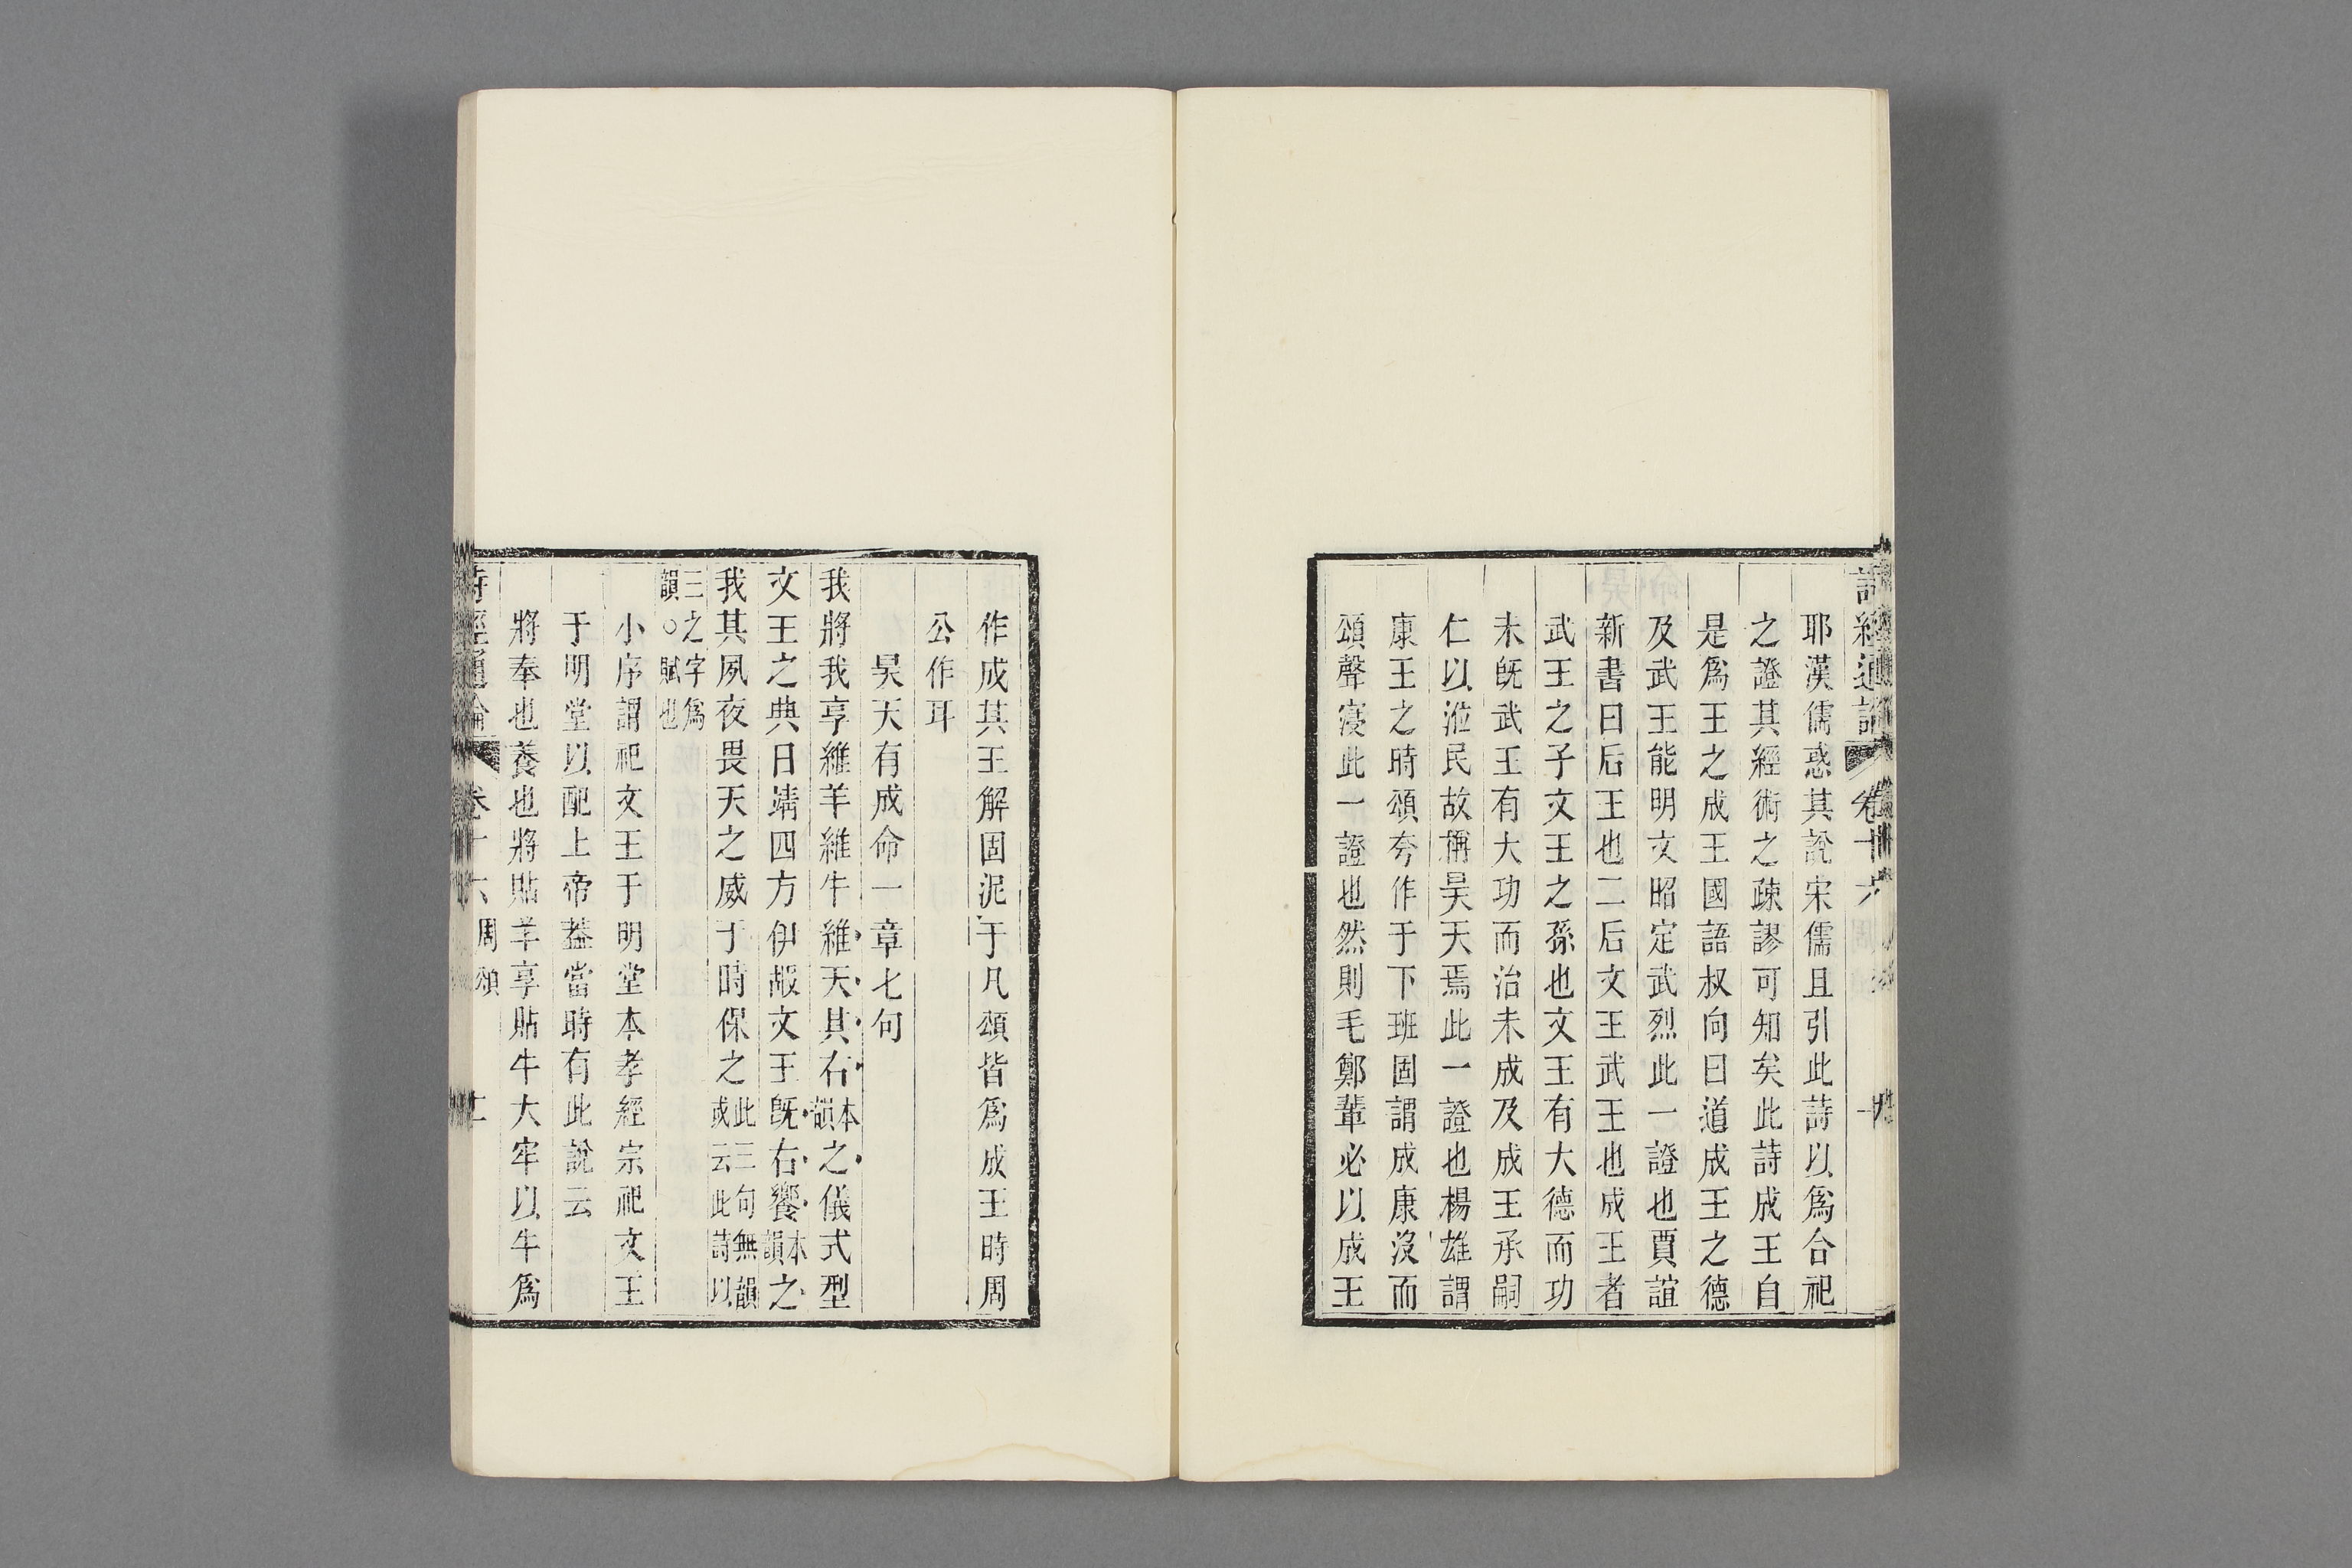 詩經通論 卷十六
耶漢儒惑其說宋儒且引此詩以爲合祀
之證其經術之疎謬可知矣此詩成王自
是爲王之成王國語叔向曰道成王之德
及武王能明文昭定武烈此一證也賈誼
新書曰后王也二后文王武王也成王者
武王之子文王之孫也文王有大德而功
未旣武王有大功而治未成及成王承嗣
仁以涖民故稱昊天焉此一證也楊雄謂
康王之時頌夸作于下班固謂成康沒而
頌聲寖此一證也然則毛鄭輩必以成王
作成其王解固泥于凡頌皆爲成王時周
公作耳
昊天有成命一章七句
我將我享維羊維牛維天其右本韻之儀式型
文王之典日靖四方伊嘏文王旣右饗本韻之
我其夙夜畏天之威于時保之此三句無韻或云此詩以
三之字爲韻○賦也
小序謂祀文王于明堂本孝經宗祀文王
于明堂以配上帝葢當時有此說云
將奉也養也將貼羊享貼牛大牢以牛爲
詩經通論 卷十六 周頌